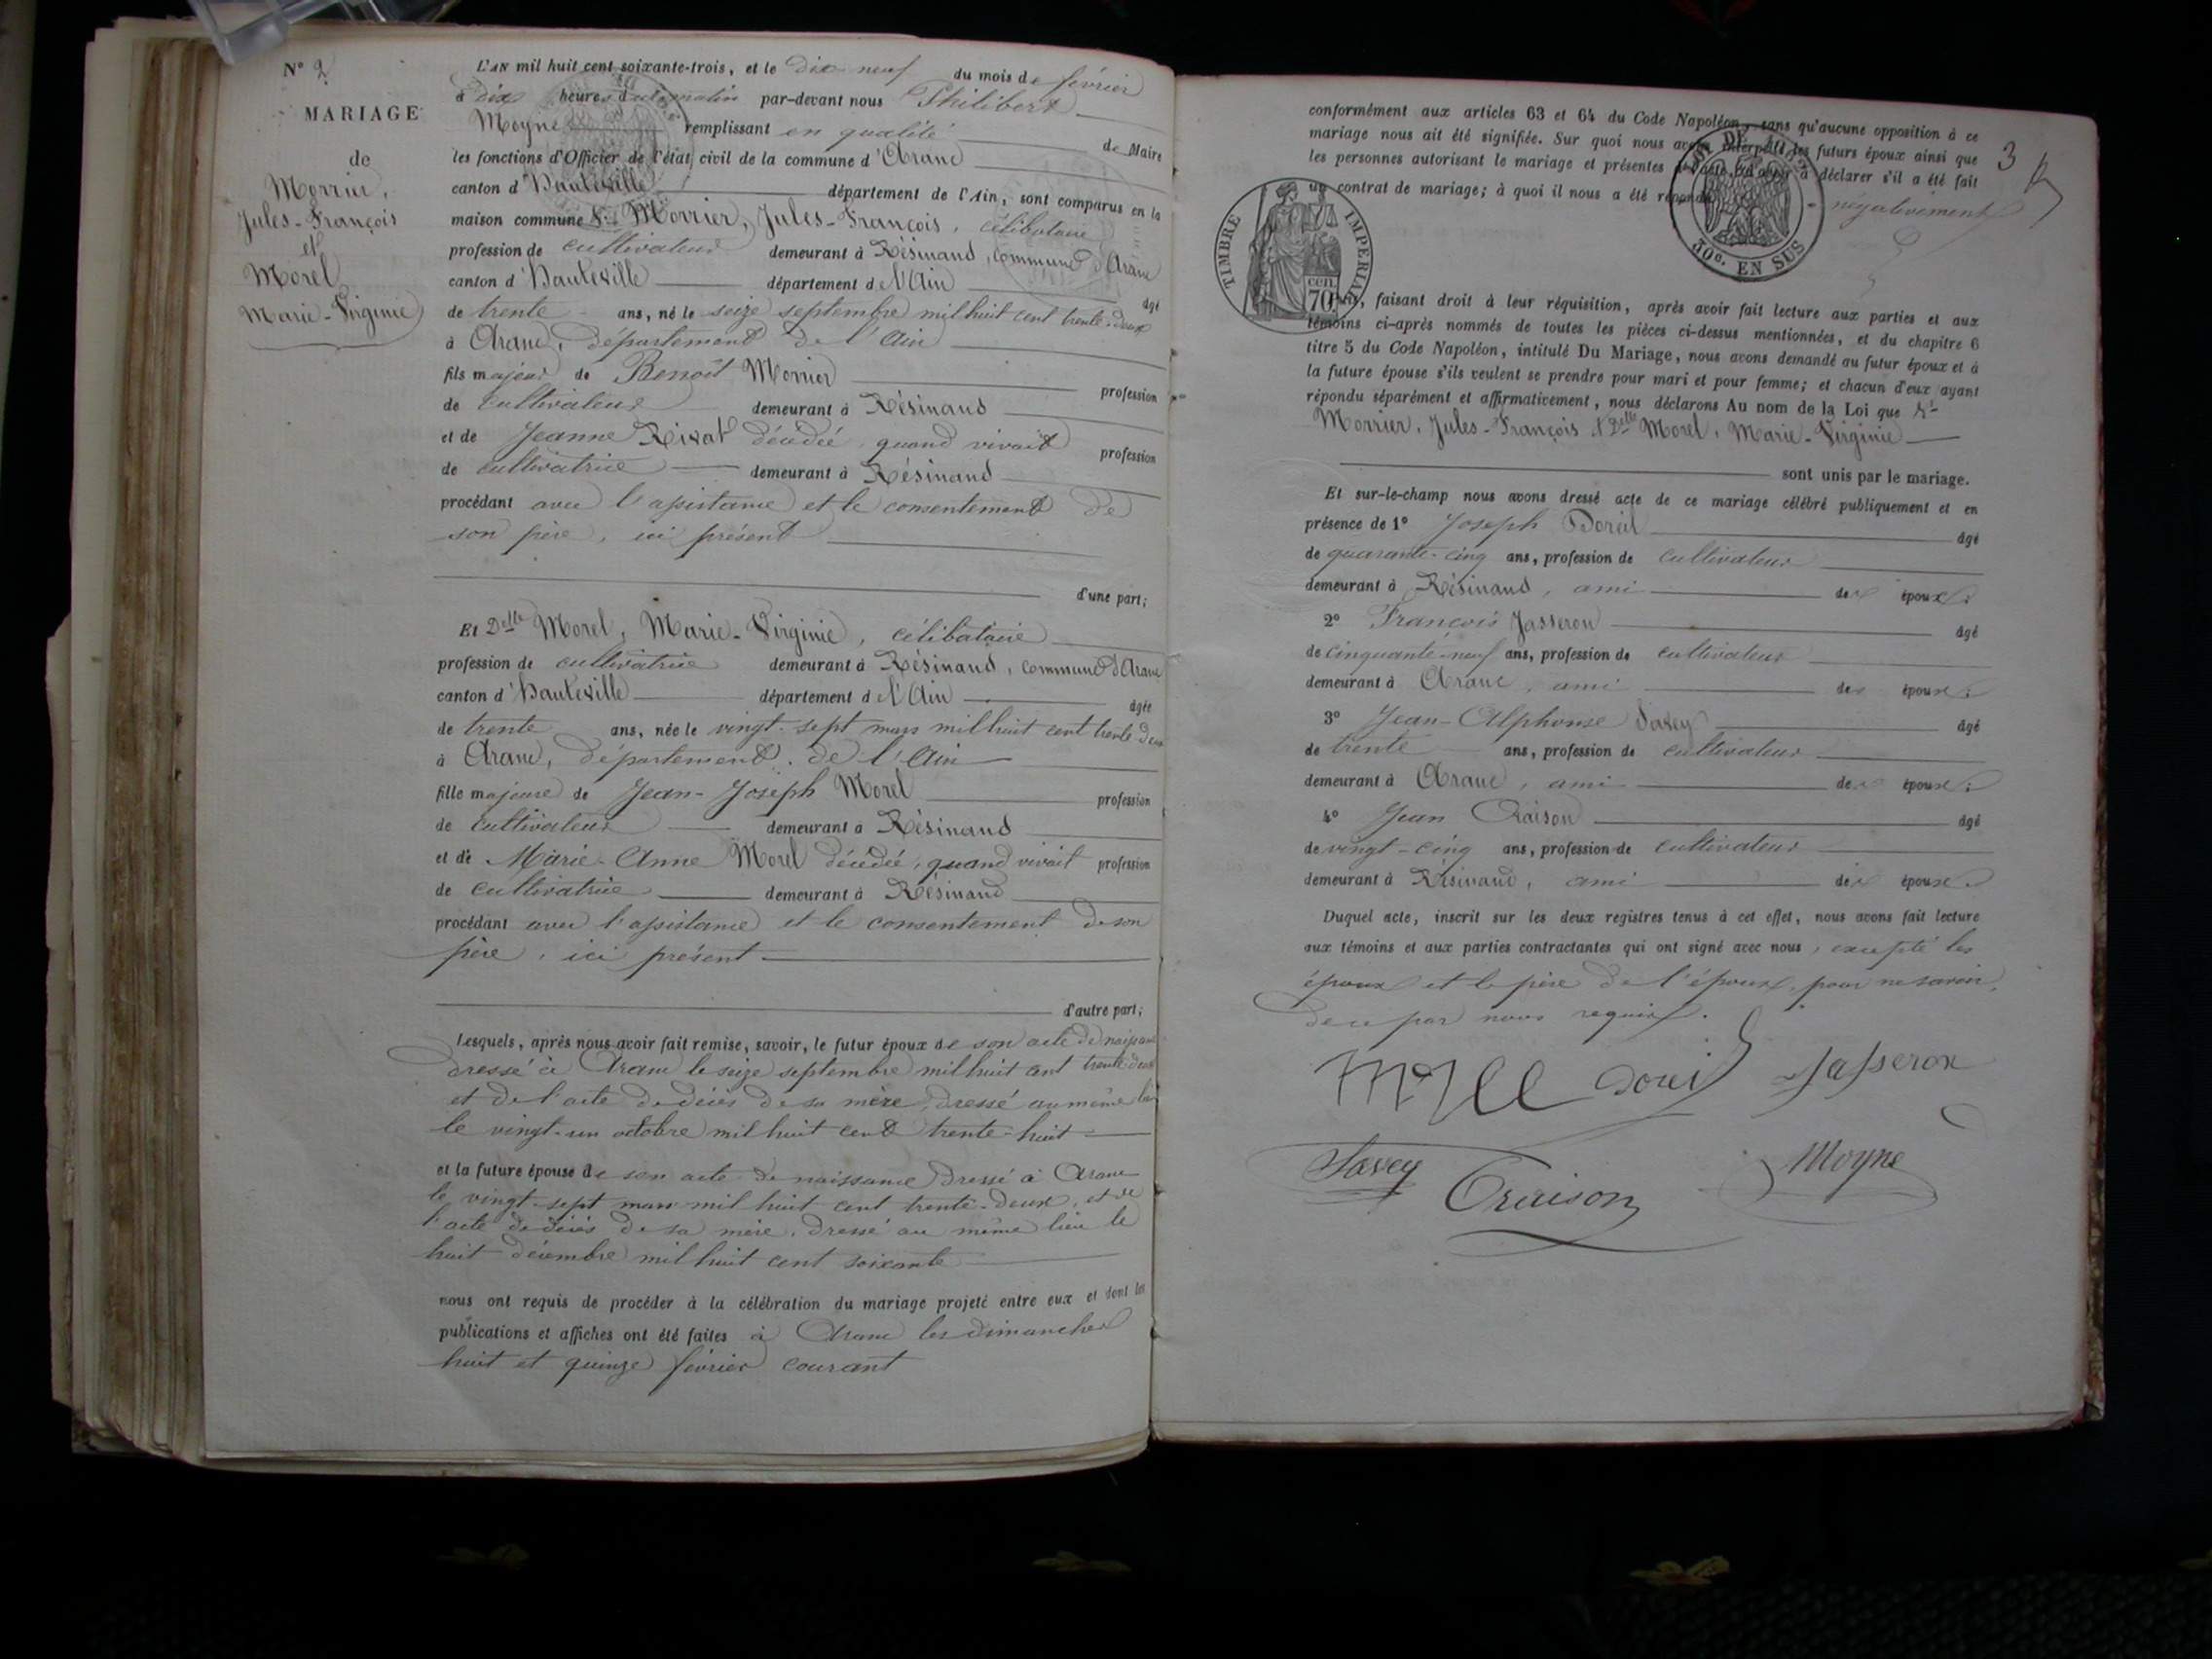 N° 2
MARIAGE
de
Morrier,
Jules-François
et
Morel
Marie-Virginie
L'AN mil huit cent soixante-trois, et le dix neuf du mois de février
à dix heures du matin par-devant nous Philibert
Moyne remplissant en qualité de Maire
les fonctions d'Officier de l'état civil de la commune d'Aranc
canton d'Hauteville département de l'Ain, sont comparus en la
maison commune Sr Morrier, Jules-François, célibataire
profession de cultivateur demeurant à Résinand, commune d'Aranc
canton d'Hauteville département de l'Ain âgé
de trente ans, né le seize septembre mil huit cent trente-deux
à Aranc, département de l'Ain
fils majeur de Benoît Morrier profession
de cultivateur demeurant à Résinand
et de Jeanne Rivat décédée, quand vivait profession
de cultivatrice demeurant à Résinand
procédant avec l'assistance et le consentement de
son père, ici présent
d'une part;
Et Delle Morel, Marie-Virginie, célibataire
profession de cultivatrice demeurant à Résinand, commune d'Aranc
canton d'Hauteville département de l'Ain âgée
de trente ans, née le vingt-sept mars mil huit cent trente-deux
à Aranc, département de l'Ain
fille majeure de Jean-Joseph Morel profession
de cultivateur demeurant à Résinand
et de Marie-Anne Morel décédée, quand vivait profession
de cultivatrice demeurant à Résinand
procédant avec l'assistance et le consentement de son
père, ici présent
d'autre part;
Lesquels, après nous avoir fait remise, savoir, le futur époux de son acte de naissance
dressé à Aranc le seize septembre mil huit cent trente-deux
et de l'acte de décès de sa mère, dressé au même lieu
le vingt-un octobre mil huit cent trente-huit
et la future épouse de son acte de naissance dressé à Aranc
le vingt-sept mars mil huit cent trente-deux, et de
l'acte de décès de sa mère, dressé au même lieu le
huit décembre mil huit cent soixante
nous ont requis de procéder à la célébration du mariage projeté entre eux et dont les
publications et affiches ont été faites à Aranc les dimanches
huit et quinze février courant
3
conformément aux articles 63 et 64 du Code Napoléon, sans qu'aucune opposition à ce
mariage nous ait été signifiée. Sur quoi nous avons interpellé les futurs époux ainsi que
les personnes autorisant le mariage et présentes à l'acte, d'avoir à déclarer s'il a été fait
un contrat de mariage; à quoi il nous a été répondu négativement
TIMBRE IMPERIAL
cen. 70
LOI DE 1862
30c. EN SUS
faisant droit à leur réquisition, après avoir fait lecture aux parties et aux
témoins ci-après nommés de toutes les pièces ci-dessus mentionnées, et du chapitre 6
titre 5 du Code Napoléon, intitulé Du Mariage, nous avons demandé au futur époux et à
la future épouse s'ils veulent se prendre pour mari et pour femme; et chacun d'eux ayant
répondu séparément et affirmativement, nous déclarons Au nom de la Loi que Sr
Morrier, Jules-François & Delle Morel, Marie-Virginie
sont unis par le mariage.
Et sur-le-champ nous avons dressé acte de ce mariage célébré publiquement et en
présence de 1° Joseph Doreil âgé
de quarante-cinq ans, profession de cultivateur
demeurant à Résinand, ami des époux;
2° François Jasseron âgé
de cinquante-neuf ans, profession de cultivateur
demeurant à Aranc, ami des époux;
3° Jean-Alphonse Savey âgé
de trente ans, profession de cultivateur
demeurant à Aranc, ami des époux;
4° Jean Craison âgé
de vingt-cinq ans, profession de cultivateur
demeurant à Résinand, ami des époux
Duquel acte, inscrit sur les deux registres tenus à cet effet, nous avons fait lecture
aux témoins et aux parties contractantes qui ont signé avec nous, excepté les
époux et le père de l'époux, pour ne savoir,
de ce par nous requis.
Jasseron
Savey
Craison
Moyne